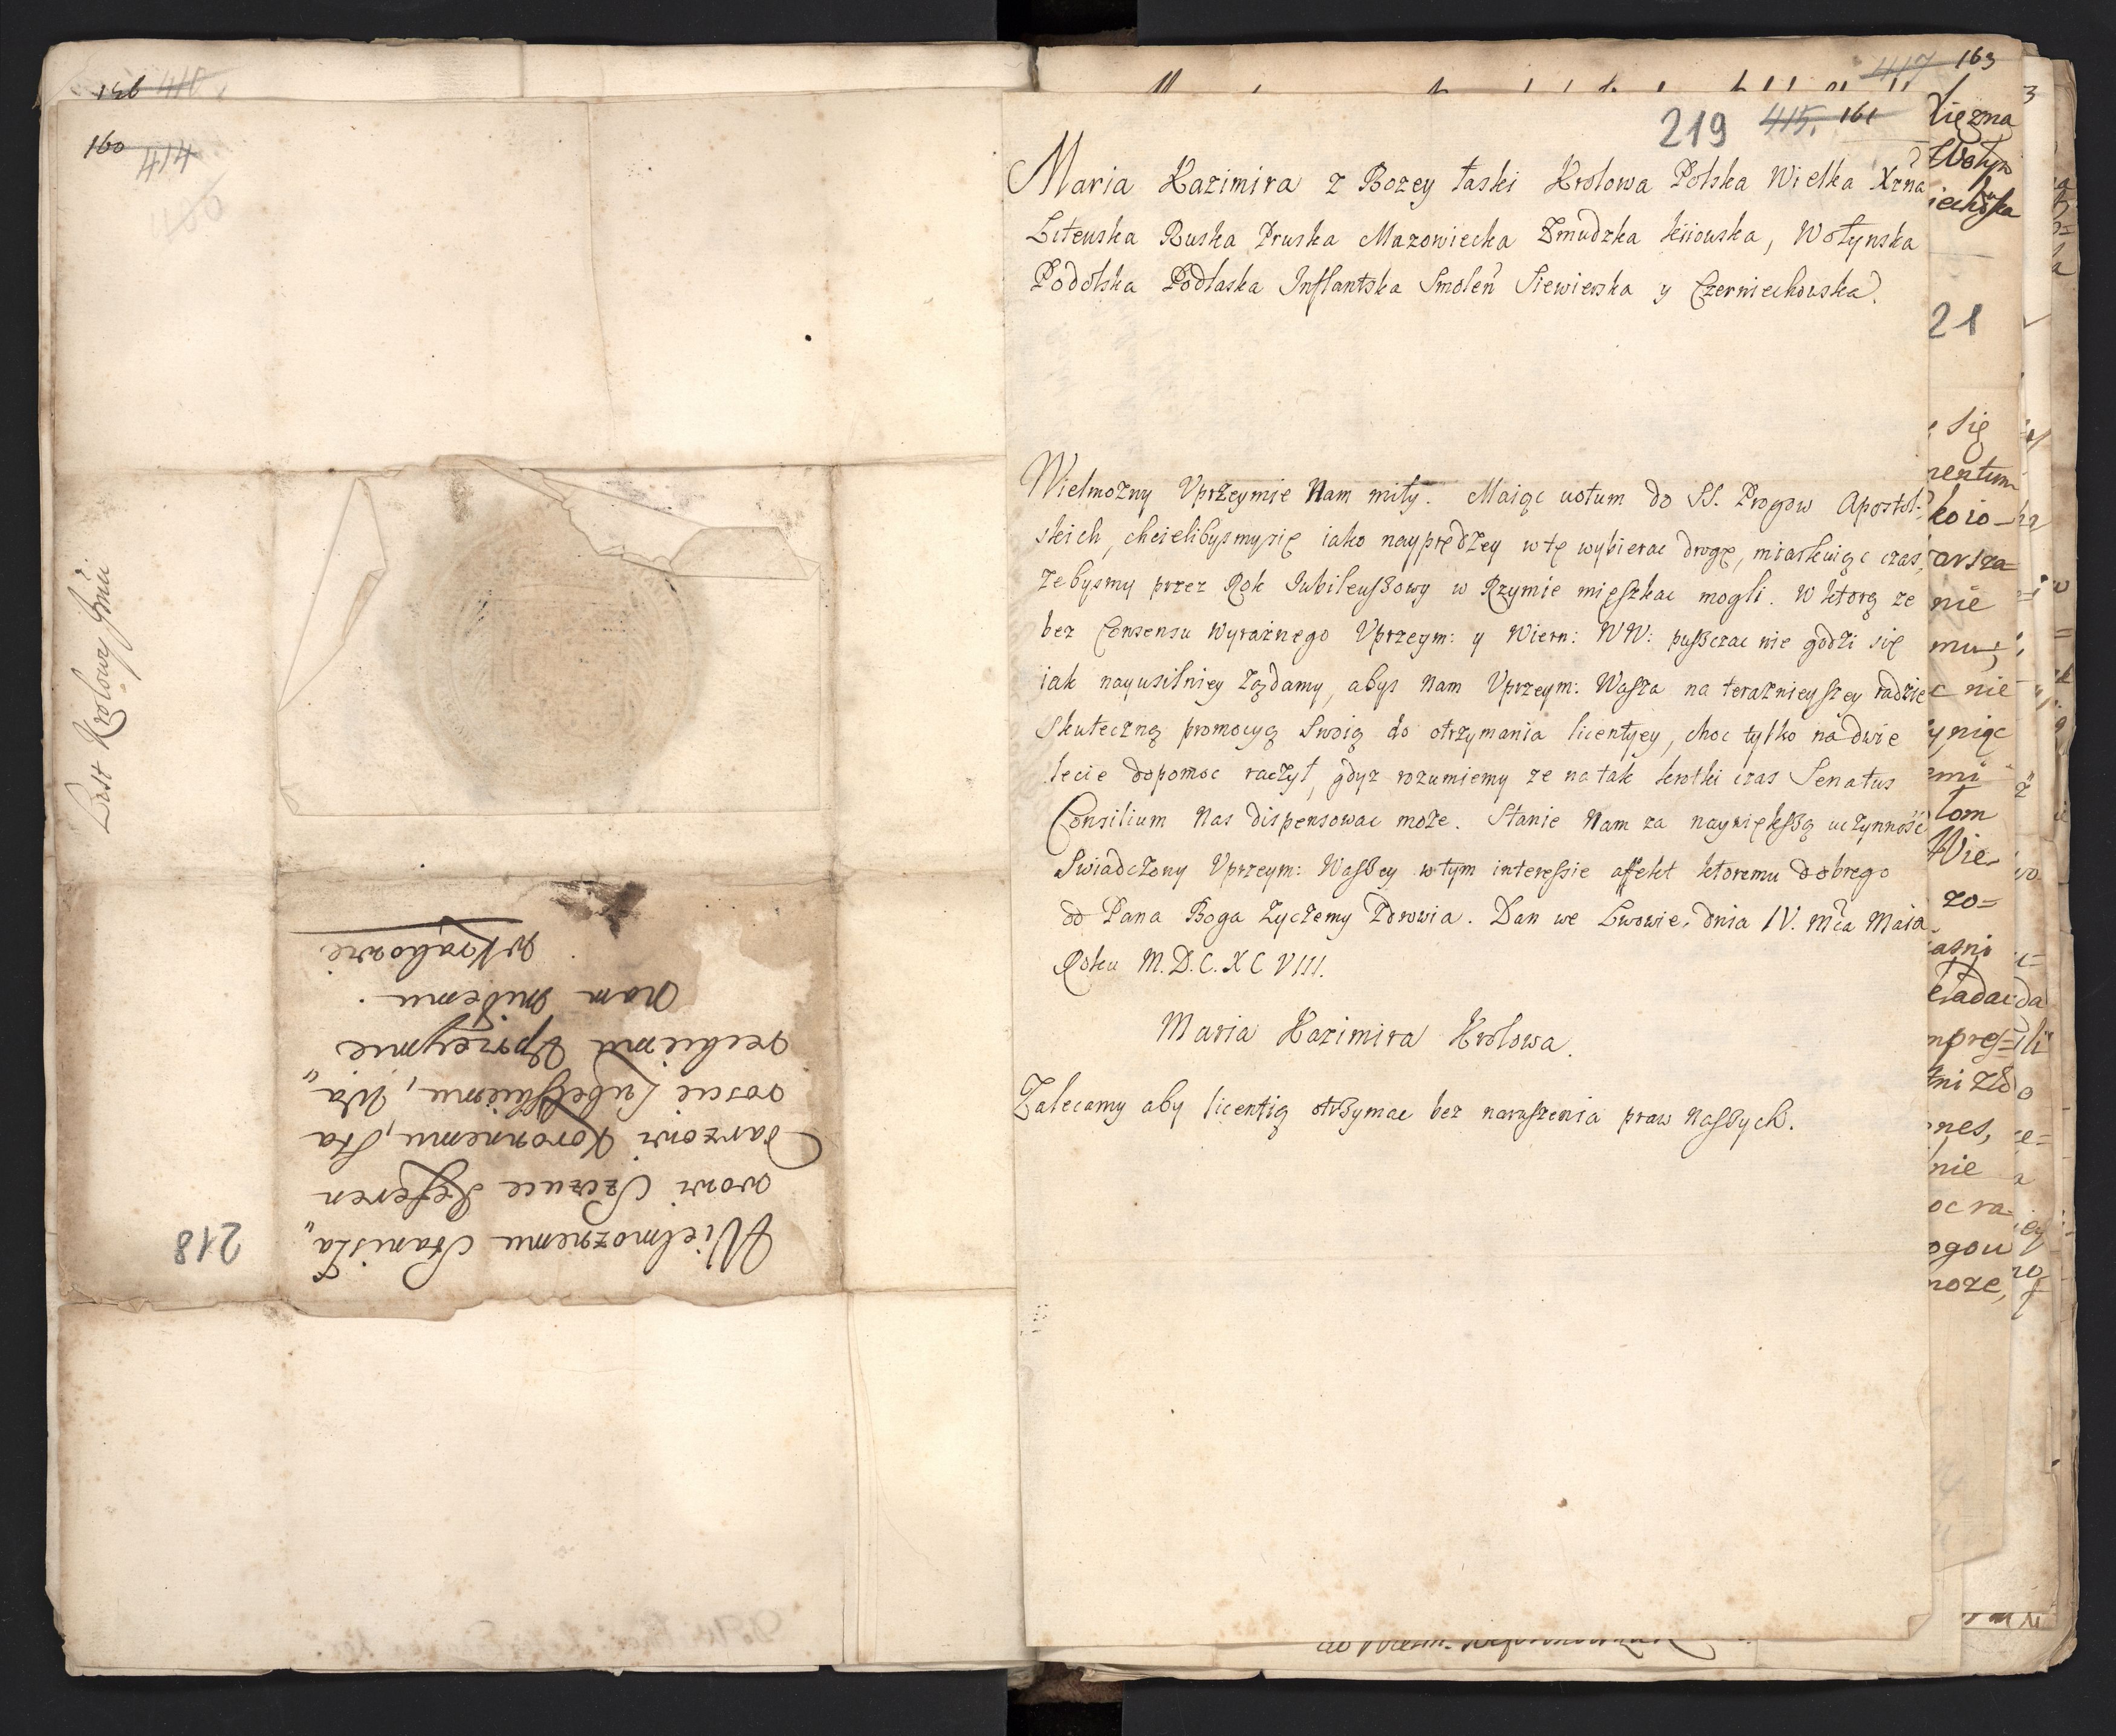 136 410
160 414
List Krolowy Jmci
Wielmoznemu Stanisła„
wowi Szczuce Referen
Darzowi Koronnemu, Sta
roscie Lubelskiemu, Wą„
Uprzeymie
Nam miłemu.
w Krakowie
218
417 163
219 415. 161
Maria Kazimira z Bozey łaski Krolowa Polska Wielka Xżna
Litewska Ruska Pruska Mazowiecka Zmudzka Kiiowska, Wołynska
Podolska Podlaska Inflantska Smolen Siewierska y Czerniechowska.
Wielmożny Vprzeymie Nam miły. Maiąc votum do SS. Progow Apostol-
skich, chcielibysmysię iako nayprędzey w tę wybierac drogę, miarkuiąc czas,
żebysmy przez Rok Iubileuszowy w Rzymie mięszkac mogli. W ktorą ze
bez Consensu Wyraźnego Vprzeym: y Wiern: WW: puszczac nie godzi się
iak nayusilniey żądamy, abys Nam Vprzeym: Wasza na teraznieyszey radzie
Skuteczną promocyą Swoią do otrzymania licentyey, choc tylko na dwie
lecie dopomoc raczył, gdyz rozumiemy ze na tak krotki czas Senatus
Consilium Nas dispensowac może. Stanie Nam za naywiększą uczynność
Swiadczony Vprzeym: Waszey w tym interessie affekt ktoremu dobrego
od Pana Boga życzemy Zdrowia. Dan we Lwowie, dnia IV. mca Maia
Roku M.D.C.XCVIII.
Maria Kazimira Krolowa.
Zalecamy aby licentią otrzymac bez naruszenia praw Naszych.
21
się
nie
nie
łom
Wie-
zo=
nie
może,